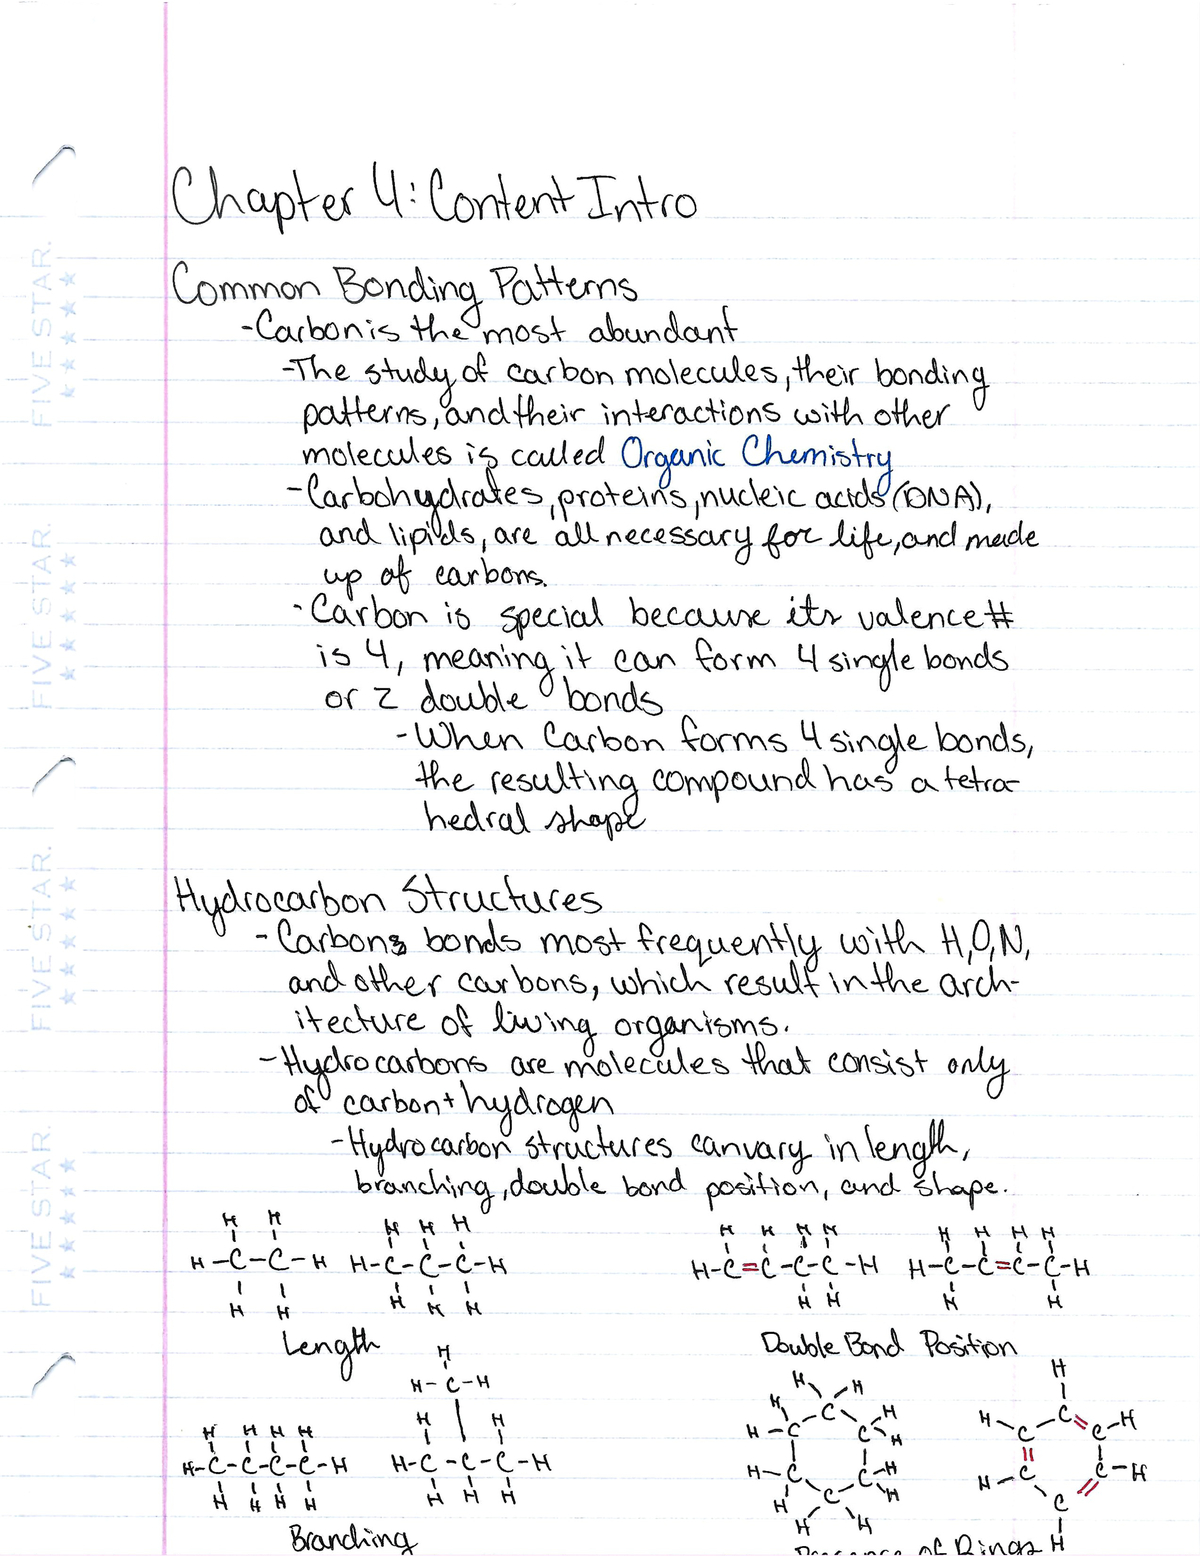 Chapter 4: Content Intro
Common Bonding Patterns
-Carbon is the most abundant
-The study of carbon molecules, their bonding
patterns, and their interactions with other
molecules is called Organic Chemistry
-Carbohydrates, proteins, nucleic acids (DNA),
and lipids, are all necessary for life, and made
up of carbons.
-Carbon is special because its valence #
is 4, meaning it can form 4 single bonds
or 2 double bonds
-When Carbon forms 4 single bonds,
the resulting compound has a tetra-
hedral shape
Hydrocarbon Structures
-Carbons bonds most frequently with H, O, N,
and other carbons, which result in the arch-
itecture of living organisms.
-Hydrocarbons are molecules that consist only
of carbon + hydrogen
-Hydrocarbon structures can vary in length,
branching, double bond position, and shape.
H H H H H H H H H H H H H
H-C-C-H H-C-C-C-H H-C=C-C-C-H H-C-C=C-C-H
H H H H H H H H H
Length Double Bond Position
H
H-C-H
H H
H H H H
H-C-C-C-C-H H-C-C-C-H
H H H H H H H
Branching
of Rings
FIVE STAR.
FIVE STAR.
FIVE STAR.
FIVE STAR.